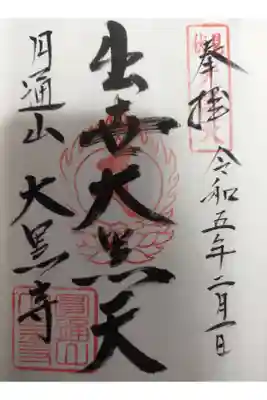 奉拝
令和五年二月一日
出世大黒天
円通山
大黒寺